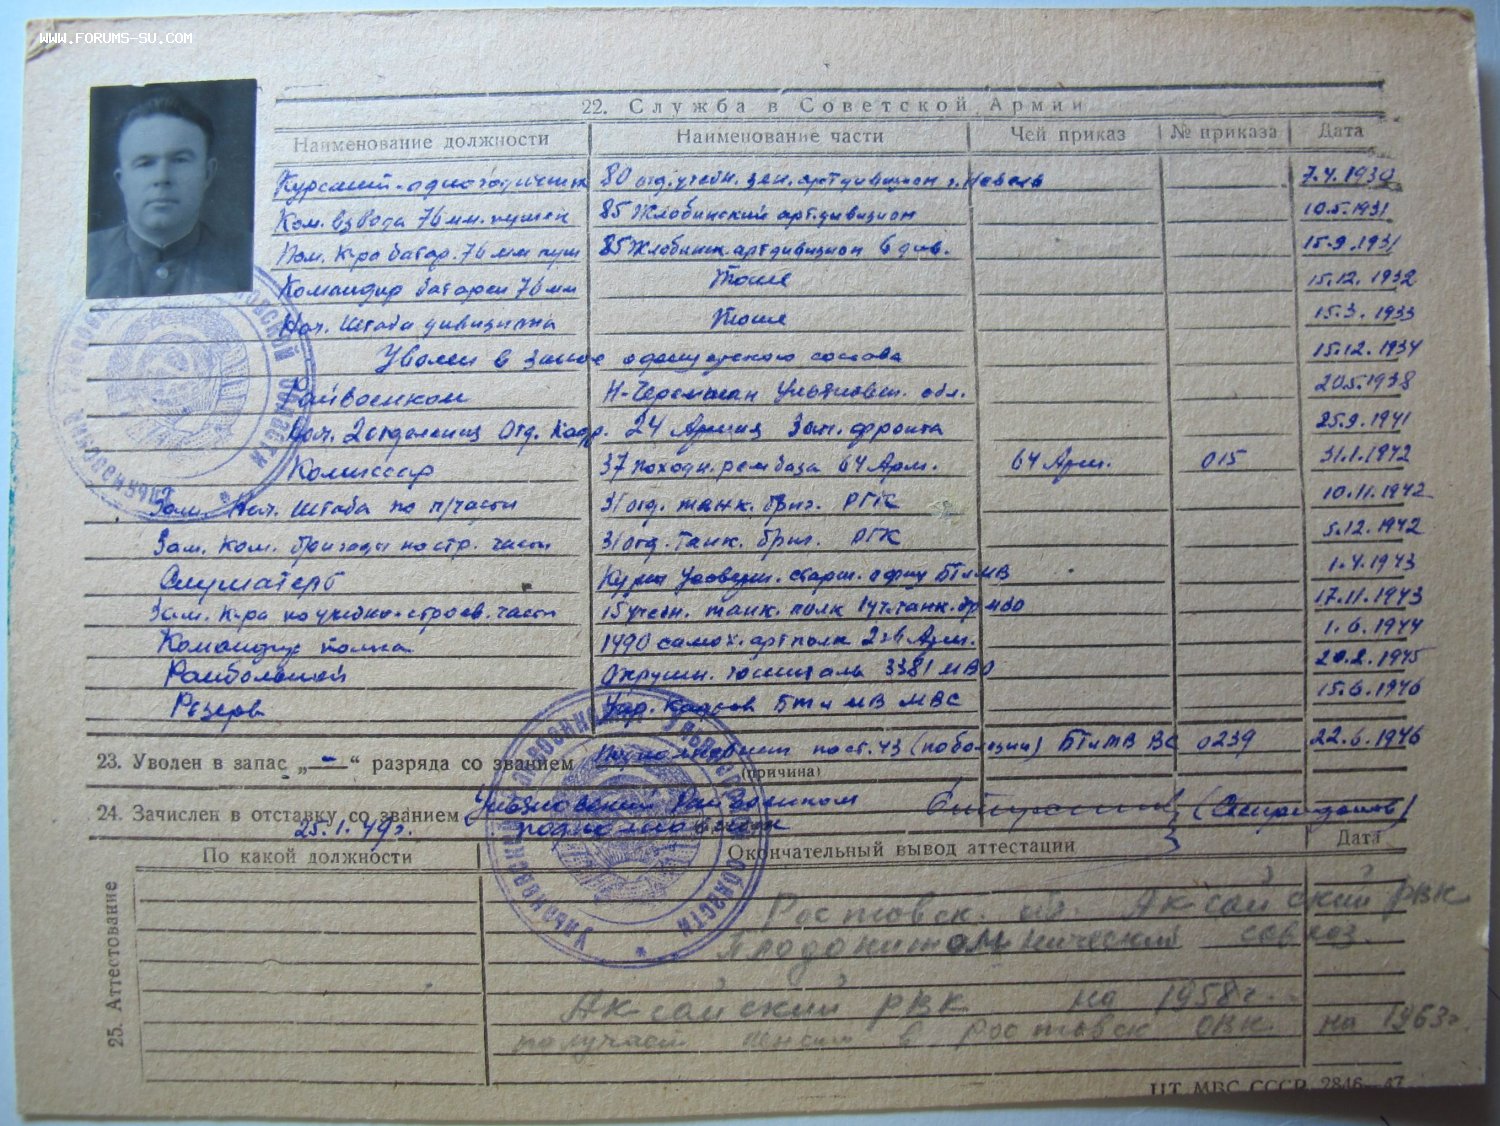 WWW.FORUMS-SU.COM
22. Служба в Советской Армии
Наименование должности Наименование части Чей приказ № приказа Дата
Курсант-одногодичник 80 отд. учебн. зен. артдивизион г. Невель 1930
Ком. взвода 76 мм. пушек 85 Жлобинский артдивизион 10.5.1931
Пом. к-ра батар. 76 мм пуш 85 Жлобинск артдивизион 6 див. 15.9.1931
Командир батареи 76 мм Тоже 15.12.1932
Нач. Штаба дивизиона Тоже 15.3.1933
Уволен в запас состава 15.12.1934
Райвоенком Н-Черемшан Ульяновск. обл. 20.5.1938
Нач. 2 отделения Отд. Кадр. 24 Армия Зап. фронта 25.9.1941
Комиссар 37 походн. рембаза 64 Арм. 64 Арм. 015 31.1.1942
Зам. Нач. Штаба по п/части 31 отд. танк. бриг. РГК 10.11.1942
Зам. Ком. бригады по стр. части 31 отд. танк. бриг. РГК 5.12.1942
Слушатель Курсы Усоверш. старш. офиц БТиМВ 1.4.1943
Зам. к-ра по учебно-строев. части 15 учебн. танк. полк 17.11.1943
Командир полка 1490 самох. артполк 2 гв Арм. 1.6.1944
Ранбольной Окружн. госпиталь 3381 МВО 20.2.1945
Резерв Упр. Кадров БТ и МВ МВС 15.6.1946
23. Уволен в запас „—“ разряда со званием Подполковник пост. 43 (по болезни) БТиМВ ВС 0239 22.6.1946
(причина)
24. Зачислен в отставку со званием Ульяновский Райвоенком
25.1.49г. подполковник
25. Аттестование
По какой должности Окончательный вывод аттестации Дата
Ростовск. об. Аксайский РВК
совхоз.
Аксайский РВК на 1958г.
получает пенсию в Ростовск ОВК на 1963г
ЦТ МВС СССР 2846—47